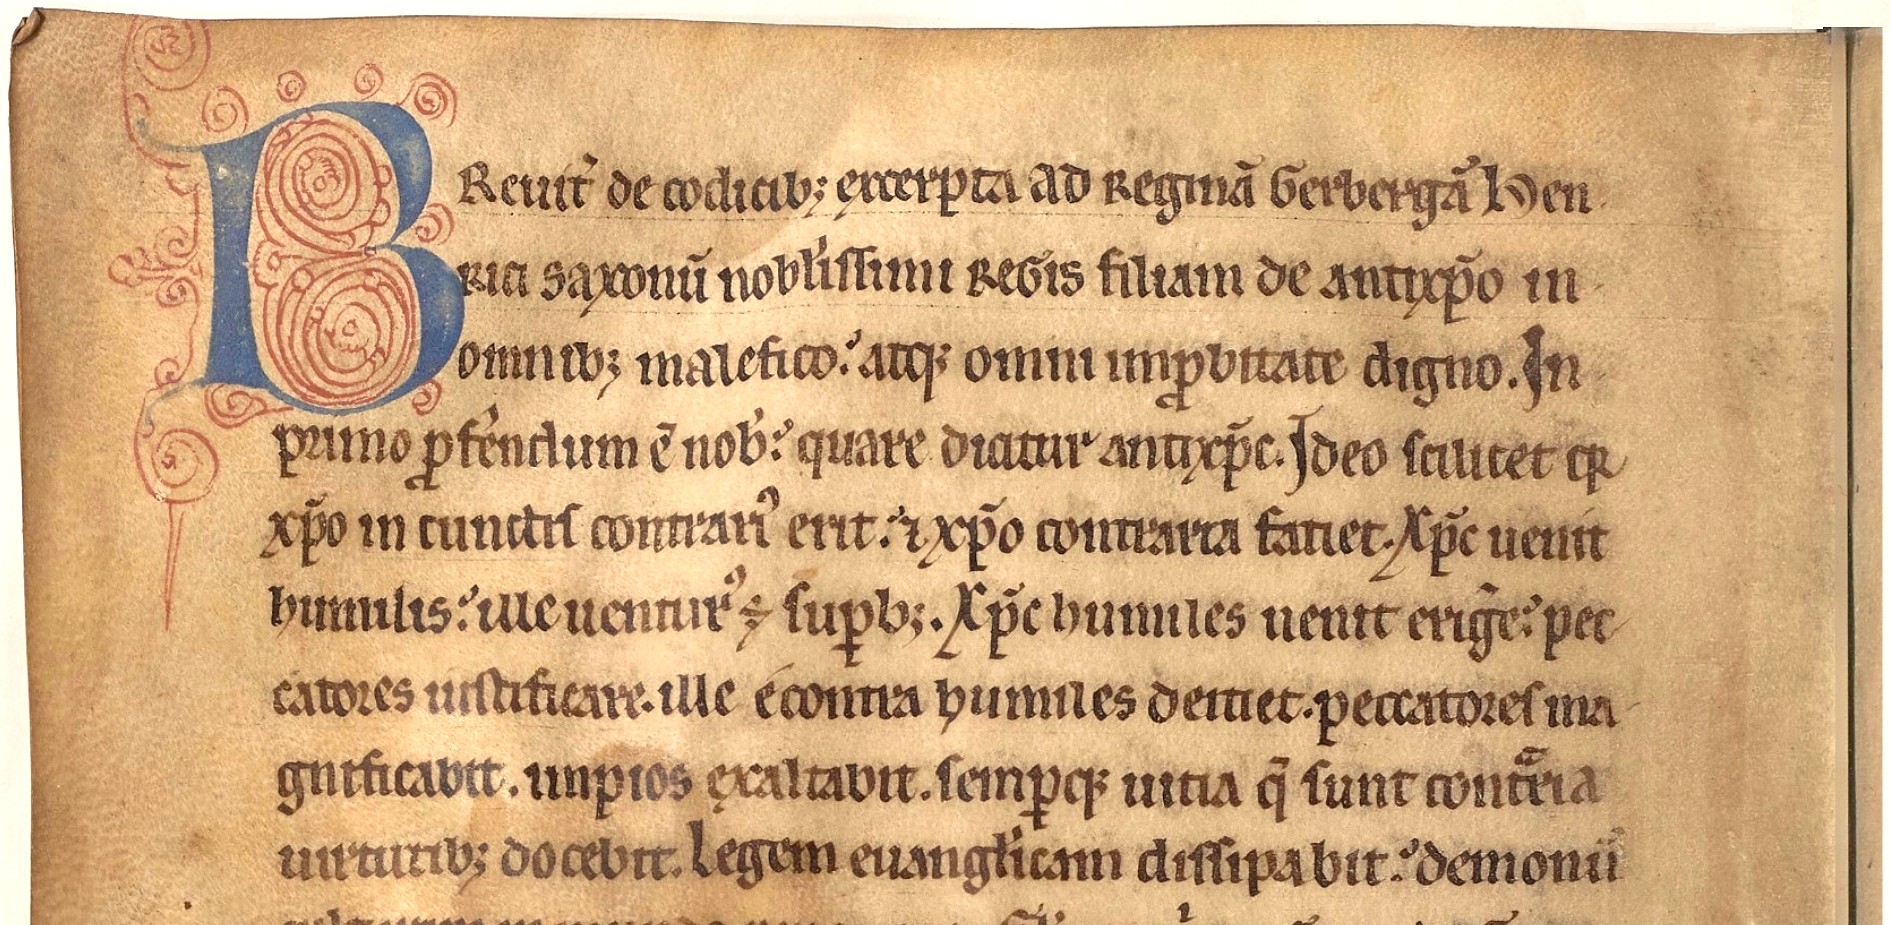 BReuit᷑ de codicib; excerpta ad Reginā Gerbergā Hen
rici saxonū nobl'issimi Regis filiam de antixp̄o in
omnib; malefico. atq; omni imꝓbitate digno. In
primo ꝓferēdum ē nob᷑. quare dicatur antixp̄c. Ideo scilicet qꝛ
xp̄o in cunctis contrariꝰ erit. ⁊ xp̄o contraria faciet. Xp̄c uenit
humilis. ille uenturꝰ ÷ suꝑb;. Xp̄c humiles uenit erigē. pec
catores iustificare. ille econtra humiles deiciet. peccatores ma
gnificabit. impios exaltabit. semꝑq; uitia q̄ sunt contᵃria
uirtutib; docebit. Legem euangl'icam dissipabit. demonū